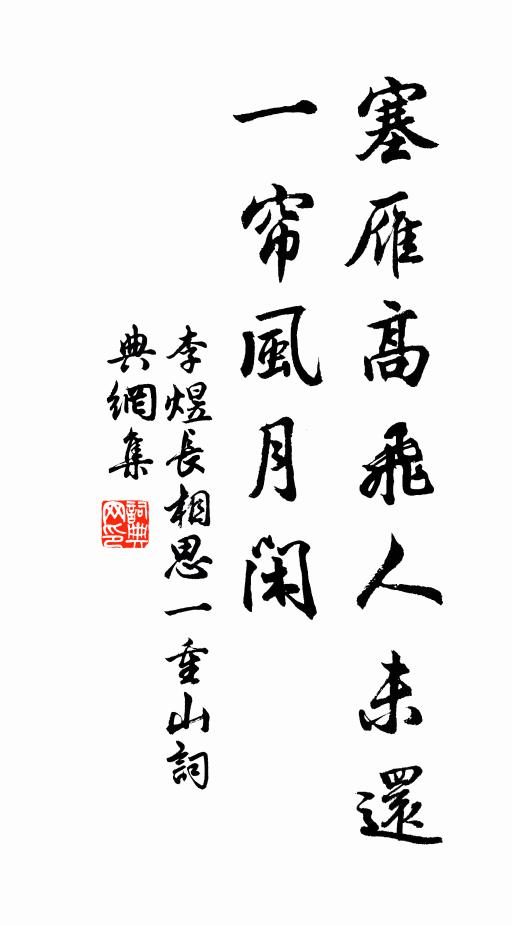 塞雁高飛人未還
一帘風月閑
李煜長相思一重山詞
典網集
詞典网印